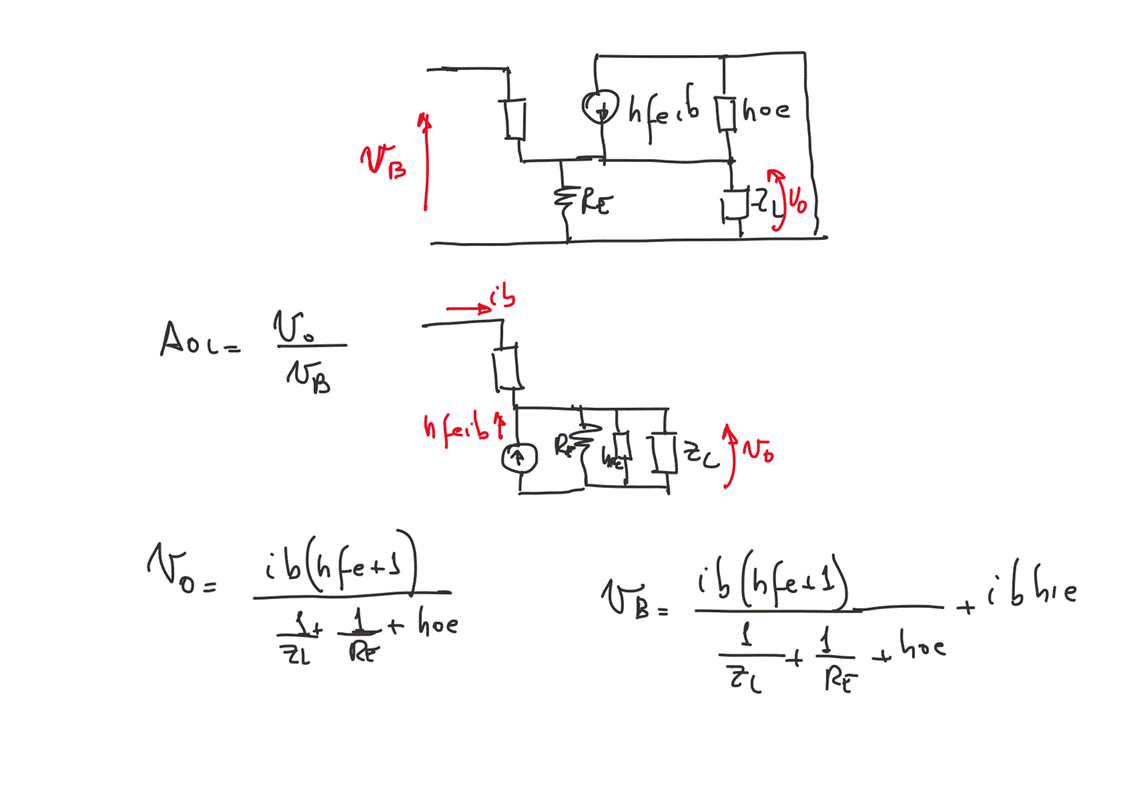 hfeib hoe
VB
RE ZL vo
ib
AOL = Vo / VB
hfeib RE hoe ZL vo
Vo = ib(hfe+1) / (1/ZL + 1/RE + hoe)
VB = ib(hfe+1) / (1/ZL + 1/RE + hoe) + ib hie